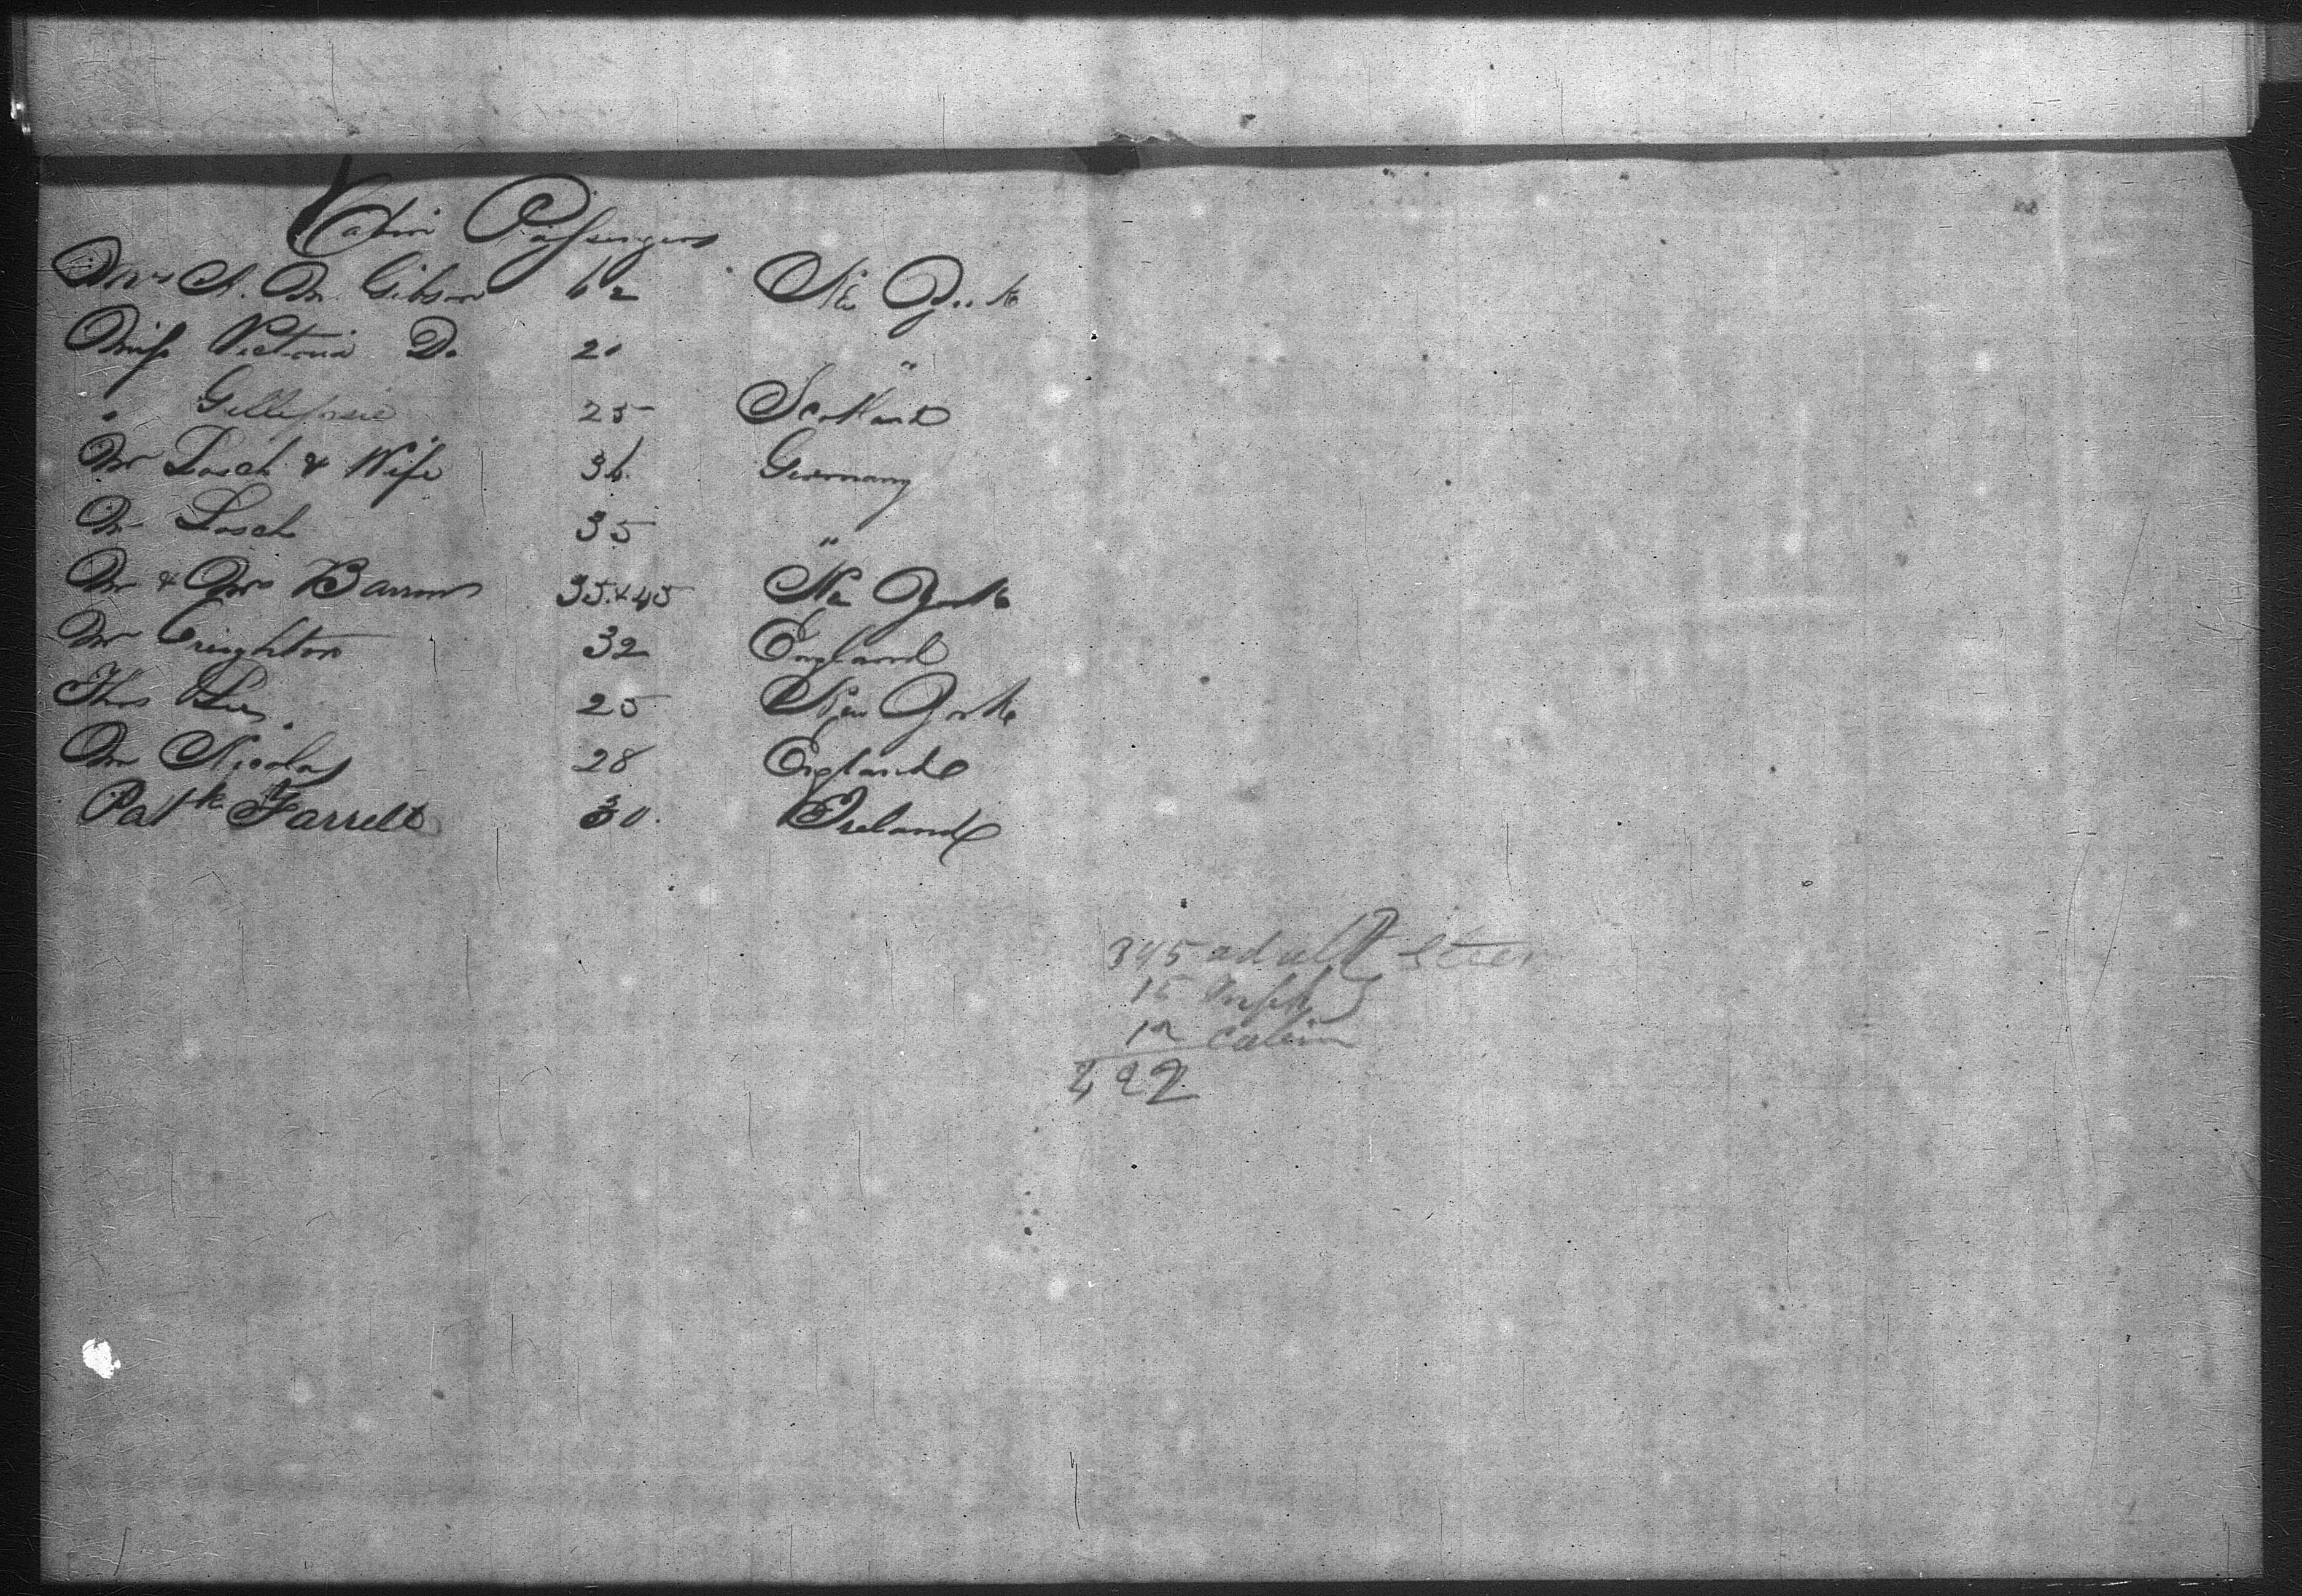 Cabin Passengers
Mrs A. M. Gibson 62 Ne York
Miss Victoria Do 20 "
" Gillespie 25 Scotland
Mr Losch & Wife 36. Germany
Mr Losch 35 "
Mr & Mrs Barrow 35 & 45 Ne York
Mr Creighton 32 England
Thos 25 New York
Mr Nicolay 28 England
Patk Farrell 30. Ireland
395 adult Steer
15
12 Cabin
422